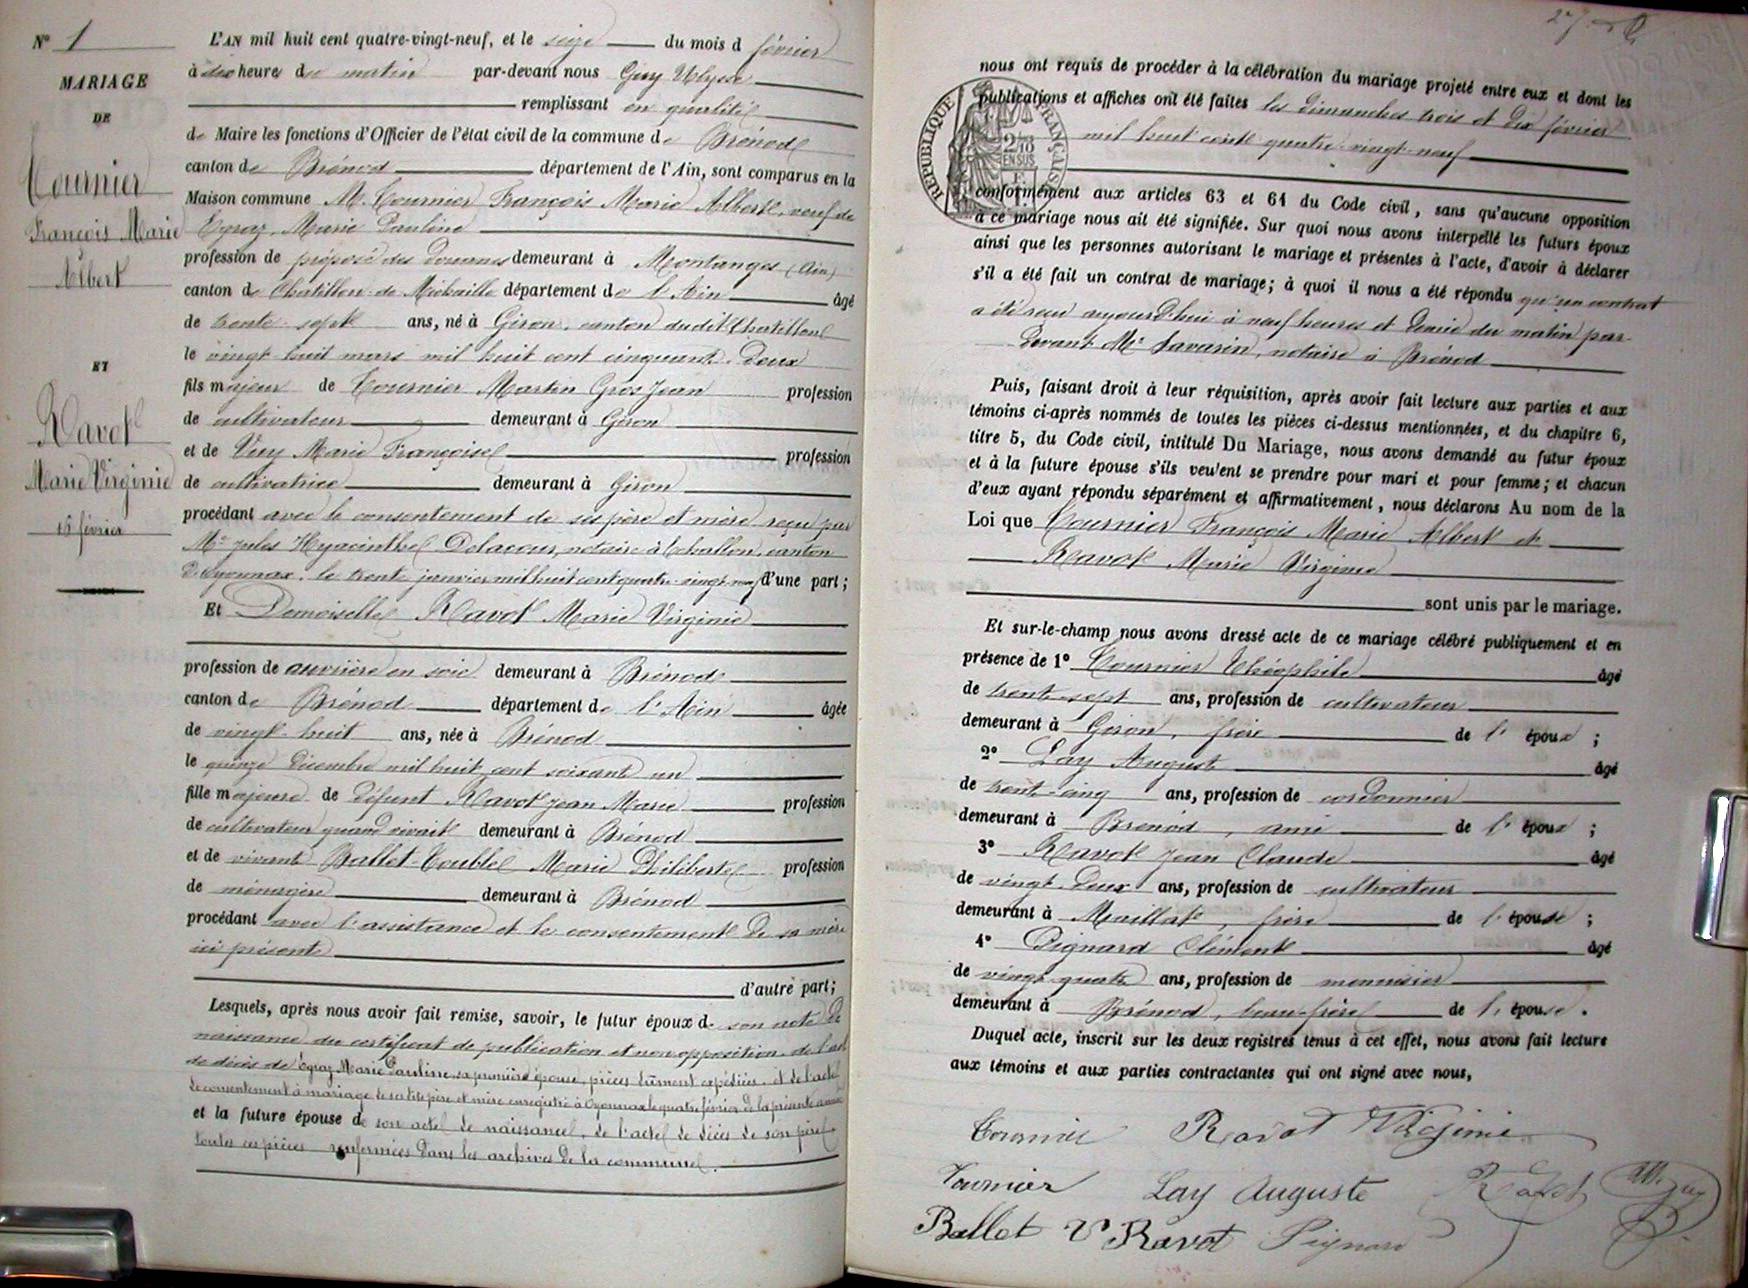 N° 1
MARIAGE
DE
Tournier
François Marie
Albert
ET
Ravot
Marie Virginie
16 février
L'AN mil huit cent quatre-vingt-neuf, et le seize du mois d février
à dix heure du matin par-devant nous Guy Ulysse
remplissant en qualité
de Maire les fonctions d'Officier de l'état civil de la commune de Brénod
canton de Brénod département de l'Ain, sont comparus en la
Maison commune M. Tournier François Marie Albert, veuf de
Egraz Marie Pauline
profession de préposé des douanes demeurant à Montanges (Ain)
canton de Chatillon de Michaille département de l'Ain âgé
de trente-sept ans, né à Giron, canton dudit Chatillon
le vingt huit mars mil huit cent cinquante-deux
fils majeur de Tournier Martin Gros Jean profession
de cultivateur demeurant à Giron
et de Vuy Marie Françoise profession
de cultivatrice demeurant à Giron
procédant avec le consentement de ses père et mère reçu par
Me Jules Hyacinthe Delacour, notaire à Echallon, canton
d'Oyonnax, le trente janvier mil huit cent quatre-vingt-neuf d'une part;
Et Demoiselle Ravot Marie Virginie
profession de ouvrière en soie demeurant à Brénod
canton de Brénod département de l'Ain âgée
de vingt-huit ans, née à Brénod
le quinze décembre mil huit cent soixante un
fille majeure de défunt Ravot Jean Marie profession
de cultivateur quand vivait demeurant à Brénod
et de vivante Ballet-Toublet Marie Philiberte profession
de ménagère demeurant à Brénod
procédant avec l'assistance et le consentement de sa mère
ici présente
d'autre part;
Lesquels, après nous avoir fait remise, savoir, le futur époux de son acte de
naissance du certificat de publication et non opposition, de l'acte
de décès de Egraz Marie Pauline, sa première épouse, pièces dûment expédiées, et de l'acte
de consentement à mariage de ses dits père et mère enregistré à Oyonnax le quatre février de la présente année
et la future épouse de son acte de naissance, de l'acte de décès de son père,
toutes ces pièces renfermées dans les archives de la commune.
RÉPUBLIQUE FRANÇAISE
2/10 EN SUS
nous ont requis de procéder à la célébration du mariage projeté entre eux et dont les
publications et affiches ont été faites les dimanches trois et dix février
mil huit cent quatre-vingt-neuf
conformément aux articles 63 et 64 du Code civil, sans qu'aucune opposition
à ce mariage nous ait été signifiée. Sur quoi nous avons interpellé les futurs époux
ainsi que les personnes autorisant le mariage et présentes à l'acte, d'avoir à déclarer
s'il a été fait un contrat de mariage; à quoi il nous a été répondu qu'un contrat
a été reçu aujourd'hui à neuf heures et demie du matin par-
devant Me Savarin, notaire à Brénod
Puis, faisant droit à leur réquisition, après avoir fait lecture aux parties et aux
témoins ci-après nommés de toutes les pièces ci-dessus mentionnées, et du chapitre 6,
titre 5, du Code civil, intitulé Du Mariage, nous avons demandé au futur époux
et à la future épouse s'ils veulent se prendre pour mari et pour femme; et chacun
d'eux ayant répondu séparément et affirmativement, nous déclarons Au nom de la
Loi que Tournier François Marie Albert et
Ravot Marie Virginie
sont unis par le mariage.
Et sur-le-champ nous avons dressé acte de ce mariage célébré publiquement et en
présence de 1° Tournier Théophile âgé
de trente-sept ans, profession de cultivateur
demeurant à Giron, frère de l'époux ;
2° Lay Auguste âgé
de trente-cinq ans, profession de cordonnier
demeurant à Brénod, ami de l'époux ;
3° Ravot Jean Claude âgé
de vingt-deux ans, profession de cultivateur
demeurant à Maillat, frère de l'épouse ;
4° Pignard Clément âgé
de vingt-quatre ans, profession de menuisier
demeurant à Brénod, beau-frère de l'épouse.
Duquel acte, inscrit sur les deux registres tenus à cet effet, nous avons fait lecture
aux témoins et aux parties contractantes qui ont signé avec nous,
Tournier Ravot Virginie
Tournier Lay Auguste Ravot
Ballet Ve Ravot Pignard